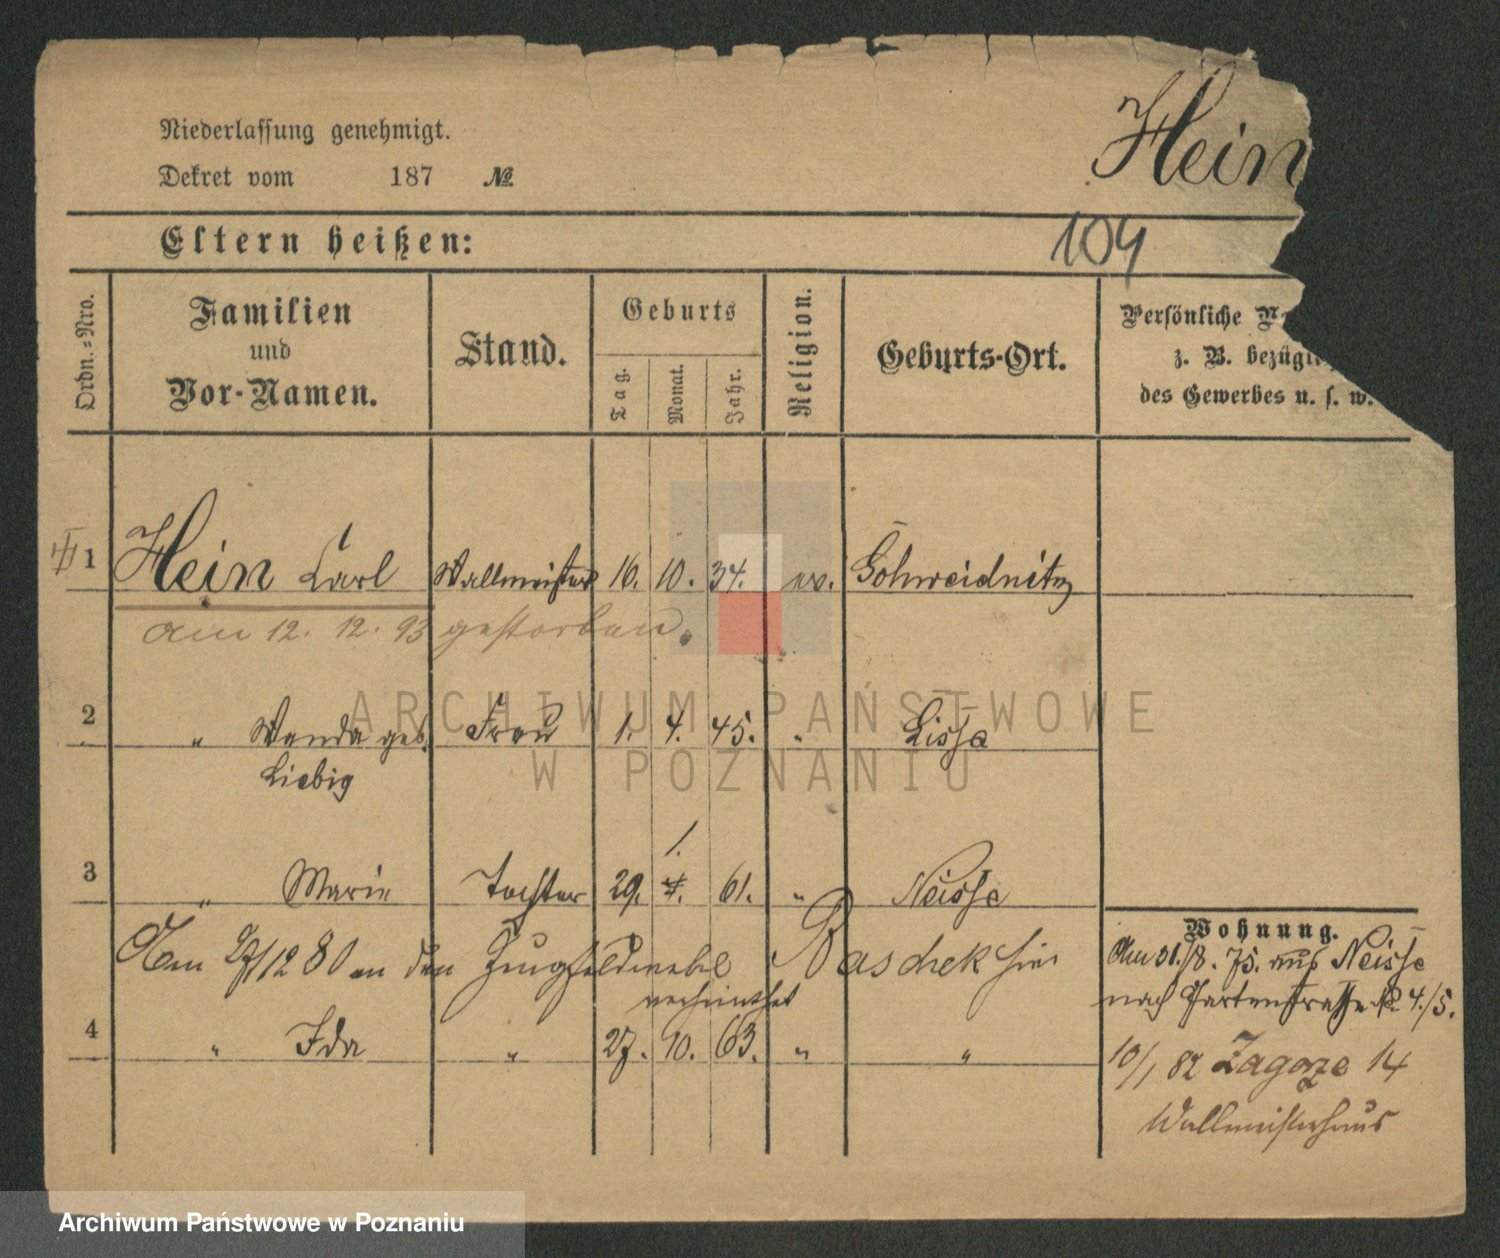 Niederlassung genehmigt.
Dekret vom 187 №.
Hein
104
Eltern heißen:
Ordn.-Nro.
Familien
und
Vor-Namen.
Stand.
Geburts
Tag.
Monat.
Jahr.
Religion.
Geburts-Ort.
Persönliche
z. B. bezügl
des Gewerbes u. s. w.
1 Hein Carl Wallmeister 16. 10. 34. ev. Schweidnitz
am 12. 12. 93 gestorben.
2 " Wanda geb. Frau 1. 4. 45. " Lissa
Liebig
1.
3 " Marie Tochter 29. 61. " Neisse
Wohnung.
Am 12 80 an den Zugfeldwebel Baschek hier
verheirathet
Am 31./8. 75. aus Neisse
nach Gartenstrasse № 4./5.
4 " Ida " 27. 10. 63. " "
10/1 82 Zagorze 14
Wallmeisterhaus
ARCHIWUM PAŃSTWOWE
W POZNANIU
Archiwum Państwowe w Poznaniu